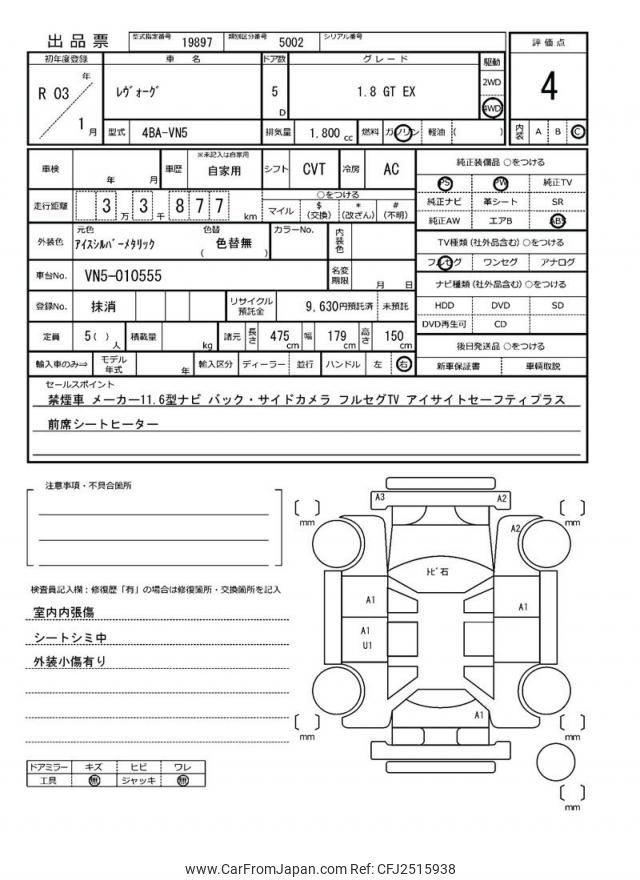 出品票 型式指定番号 19897 類別区分番号 5002 シリアル番号
初年度登録 車名 ドア数 グレード 駆動 評価点
R 03 年 1 月 ﾚｳﾞｫｰｸﾞ 5 D 1.8 GT EX 2WD 4WD 4
型式 4BA-VN5 排気量 1.800 cc 燃料 ガソリン 軽油 ( ) 内装 A B C
車検 年 月 車歴 ※未記入は自家用 自家用 シフト CVT 冷房 AC 純正装備品 ○をつける
PS PW 純正TV
走行距離 3 万 3 千 8 7 7 km ○をつける
マイル $ (交換) * (改ざん) # (不明)
純正ナビ 革シート SR
純正AW エアB ABS
外装色 元色 ｱｲｽｼﾙﾊﾞｰﾒﾀﾘｯｸ 色替 ( 色替無 ) カラーNo. 内装色
TV種類 (社外品含む) ○をつける
フルセグ ワンセグ アナログ
車台No. VN5-010555 名変期限 月 日
ナビ種類 (社外品含む) ○をつける
登録No. 抹消 リサイクル預託金 9,630円預託済 未預託
HDD DVD SD
DVD再生可 CD
定員 5 ( ) 人 積載量 kg 諸元 長さ 475 cm 幅 179 cm 高さ 150 cm
後日発送品 ○をつける
輸入車のみ⇒ モデル年式 年 輸入区分 ディーラー 並行 ハンドル 左 右
新車保証書 車輌取説
セールスポイント
禁煙車 メーカー11.6型ナビ バック・サイドカメラ フルセグTV アイサイトセーフティプラス
前席シートヒーター
注意事項・不具合箇所
検査員記入欄：修復歴「有」の場合は修復箇所・交換箇所を記入
室内内張傷
シートシミ中
外装小傷有り
ドアミラー キズ ヒビ ワレ
工具 無 ジャッキ 無
A3 A2
mm mm
A2
ﾄﾋﾞ石
A1 A1
A1
U1
A1
mm mm
mm
www.CarFromJapan.com Ref: CFJ2515938